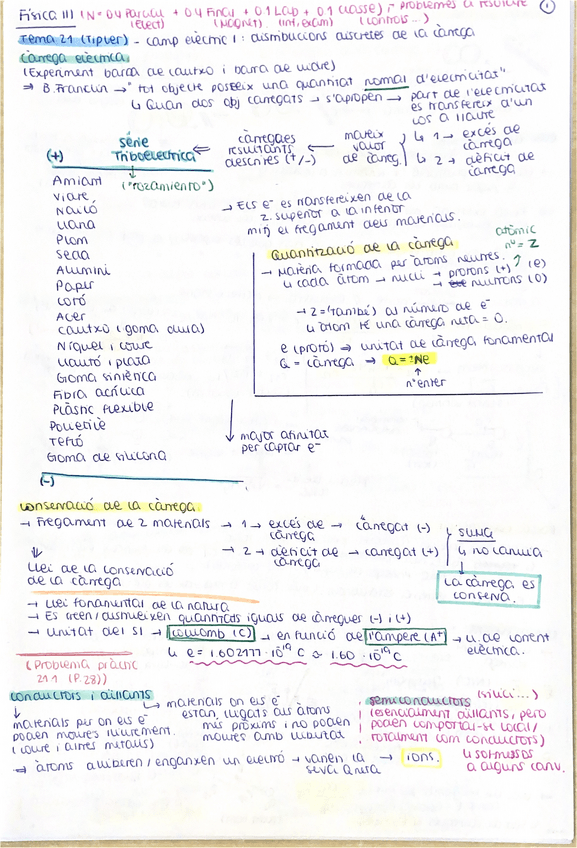 Física III (N = 0'4 Parcial + 0'4 Final + 0'1 Lab + 0'1 classe) → problemes a resoldre ①
(elect) (Magnet) (int. exam) (controls...)
Tema 21 (Tipler) - camp elèctric 1: distribucions discretes de la càrrega
càrrega elèctrica
(Experiment barra de cautxo i barra de vidre)
⇒ B. Franklin → "tot objecte posteix una quantitat normal d'electricitat"
↳ Quan dos obj carregats → s'apropen → part de l'electricitat
es transfereix d'un
cos a l'altre
(+) sèrie Triboelèctrica ⇐ càrregues resultants descrites (+/-) ← mateix valor de càrreg.
↳ 1 → excés de càrrega
↳ 2 → dèficit de càrrega
("rozamiento")
Amiant
Vidre
Nailó
Llana
Plom
Seda
Alumini
Paper
Cotó
Acer
Cautxo (goma dura)
Níquel i coure
Llautó i plata
Goma sintètica
Fibra acrílica
Plàstic flexible
Polietilè
Tefló
Goma de silicona
(-)
→ Els e⁻ es transfereixen de la
z. superior a la inferior
mitj el fregament dels materials.
↓ major afinitat
per captar e⁻
Quantització de la càrrega
atòmic
nº = Z
→ Matèria formada per àtoms neutres. ↑ (e)
↳ cada àtom → nucli → protons (+)
→ neutrons (0)
→ Z = (també) al número de e⁻
↳ àtom té una càrrega neta = 0.
e (protó) → unitat de càrrega fonamental
Q = càrrega → Q = ±Ne
↑
nº enter
Conservació de la càrrega.
→ Fregament de 2 materials → 1 → excés de càrrega → carregat (-)
→ 2 → dèficit de càrrega → carregat (+)
suma
↳ no canvia
↓
La càrrega es
conserva.
⇓
Llei de la conservació
de la càrrega
→ Llei fonamental de la natura
→ Es creen/destrueixen quantitats iguals de càrregues (-) i (+)
→ Unitat del SI → coulomb (C) → en funció de l'Ampere (A) → u. de corrent
elèctrica.
↳ e = 1.602177 · 10⁻¹⁹ C ≈ 1.60 · 10⁻¹⁹ C
(Problema pràctic
21 1 (P.28))
conductors i aïllants
↓
materials per on els e⁻
poden moures lliurement.
(coure i altres metalls)
↳ materials on els e⁻
estan lligats als àtoms
més pròxims i no poden
moures amb llibertat
semiconductors (silici...)
(essencialment aïllants, però
poden comportar-se total/
totalment com conductors)
↳ sotmesos
a alguns canv.
⇒ àtoms alliberen/enganxen un electró → varien la → ions.
seva Q neta